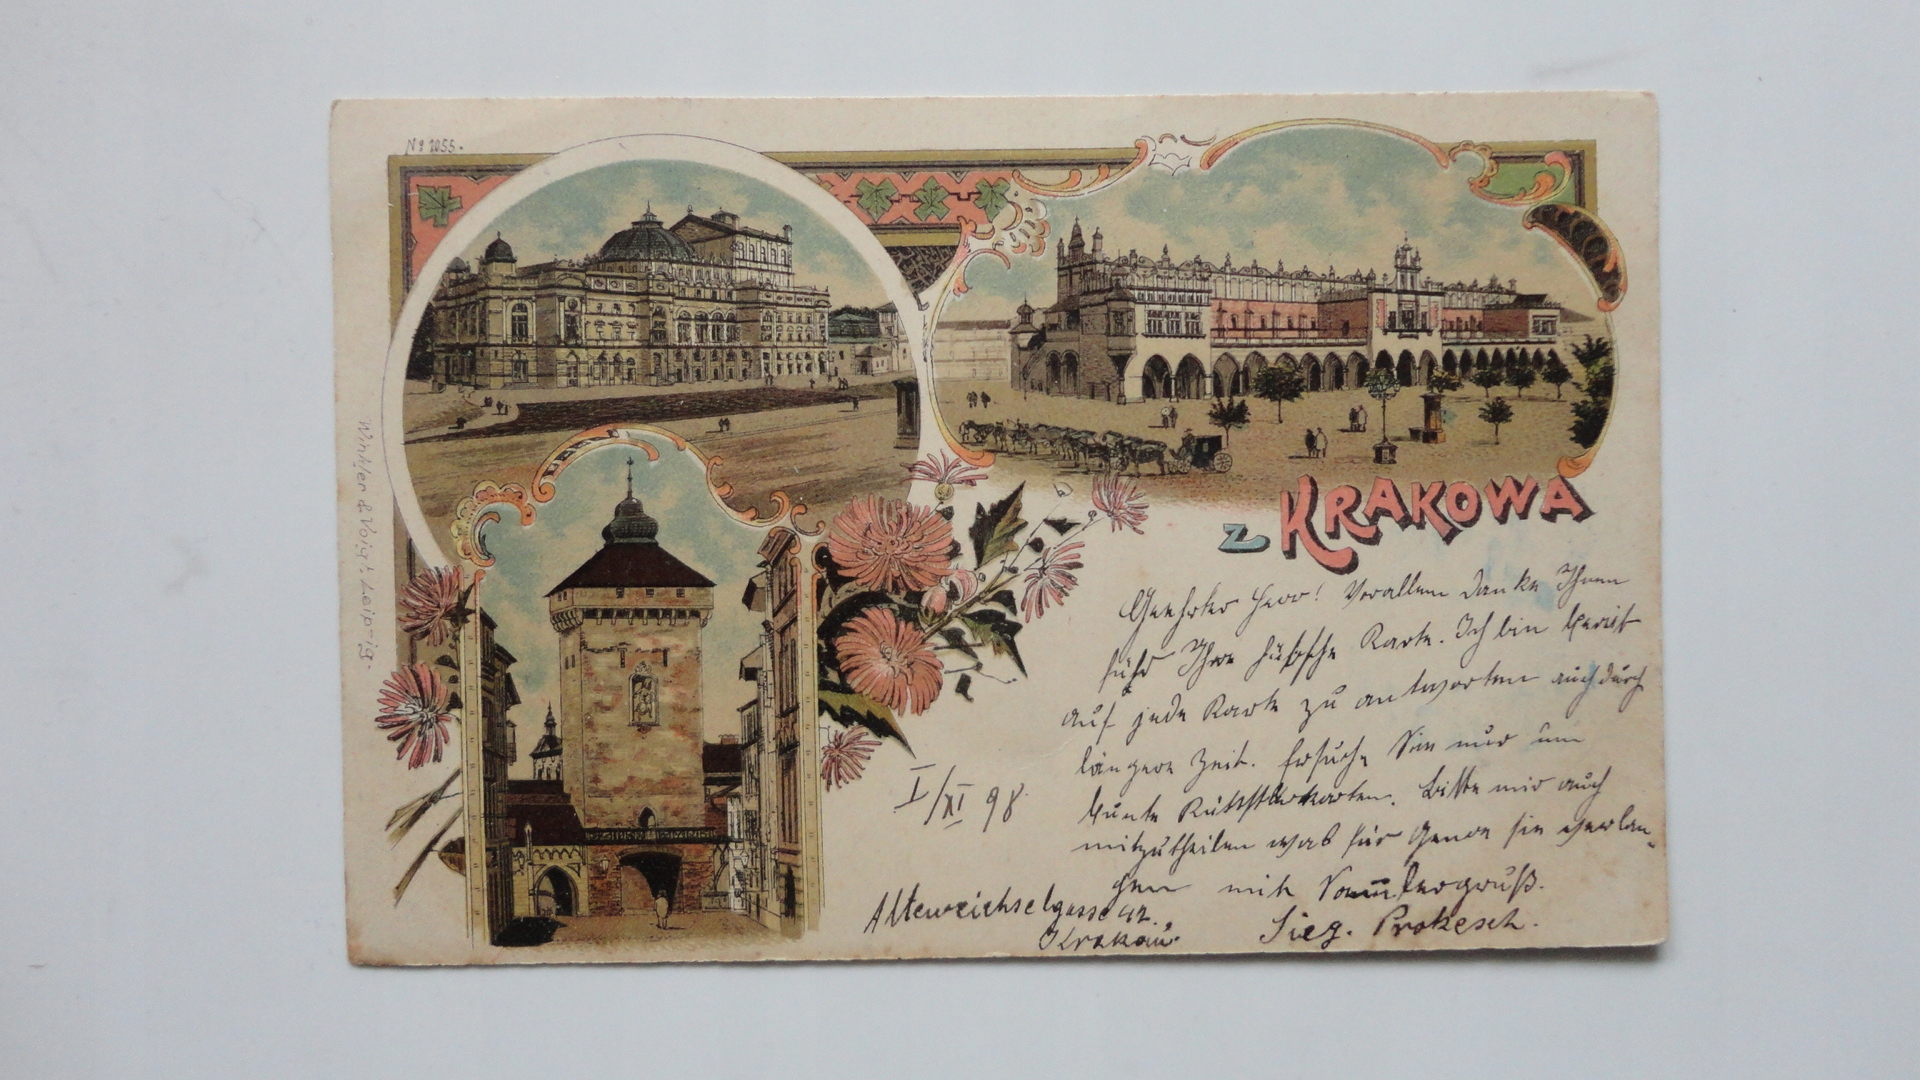 No 2055.
Winkler & Voigt Leipzig.
z KRAKOWA
Geehrter Herr! Vorallem Danke Ihnen
für Ihre hübsche Karte. Ich bin bereit
auf jede Karte zu antworten auch durch
längere Zeit. Ersuche Sie nur um
bunte Künstlerkarten. Bitte mir auch
mitzutheilen was für Genre sie verlan-
gen mit Sammlergruß.
Sieg. Prokesch.
I/XI 98
Altenweichselgasse 42.
Krakau.